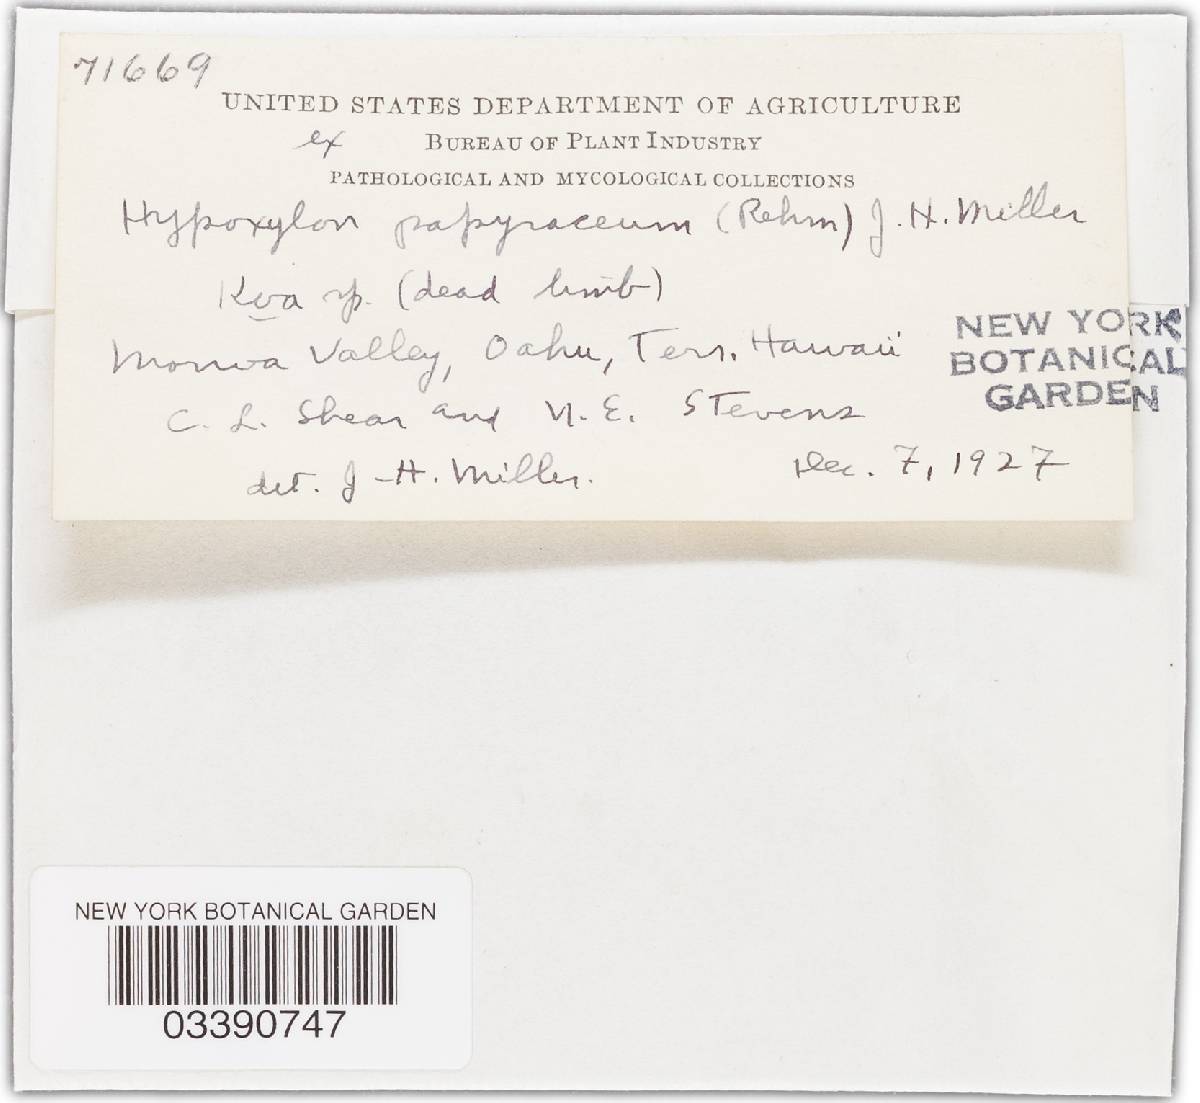 71669
UNITED STATES DEPARTMENT OF AGRICULTURE
ex BUREAU OF PLANT INDUSTRY
PATHOLOGICAL AND MYCOLOGICAL COLLECTIONS
Hypoxylon papyraceum (Rehm) J. H. Miller
Koa sp. (dead limb)
Valley, Oahu, Terr. Hawaii
C. L. Shear and N. E. Stevens
det. J. H. Miller. Dec. 7, 1927
NEW YORK
BOTANICAL
GARDEN
NEW YORK BOTANICAL GARDEN
03390747